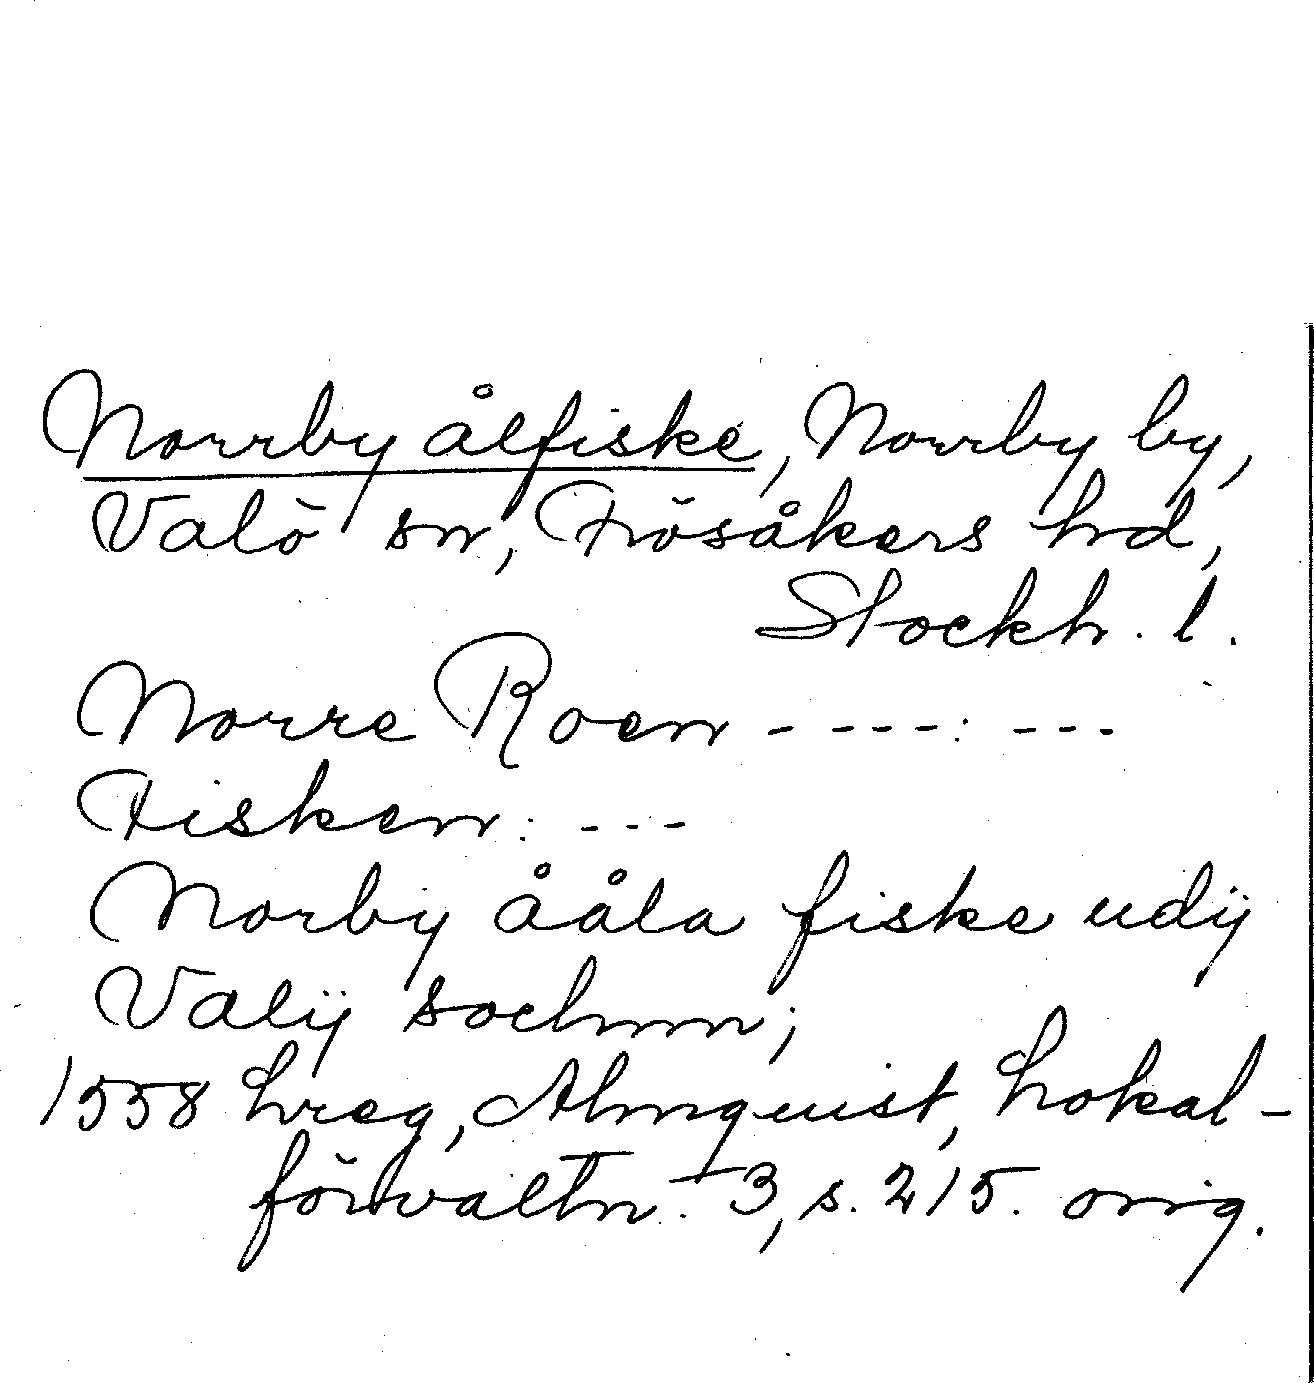 Norrby ålfiske, Norrby by,
Valö sn, Frösåkers hd,
Stockh. l.
Norre Roen - - - - - : - - -
Fisken: - - -
Norby ååla fiske udij
Valij sochnn;
1558 hreg, Almquist, Lokal-
förvaltn. 3, s. 215. orig.